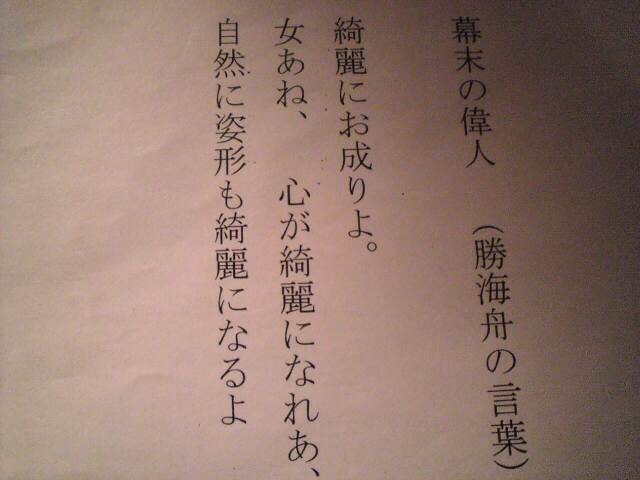 幕末の偉人　(勝海舟の言葉)
綺麗にお成りよ。
女あね、　心が綺麗になれあ、
自然に姿形も綺麗になるよ